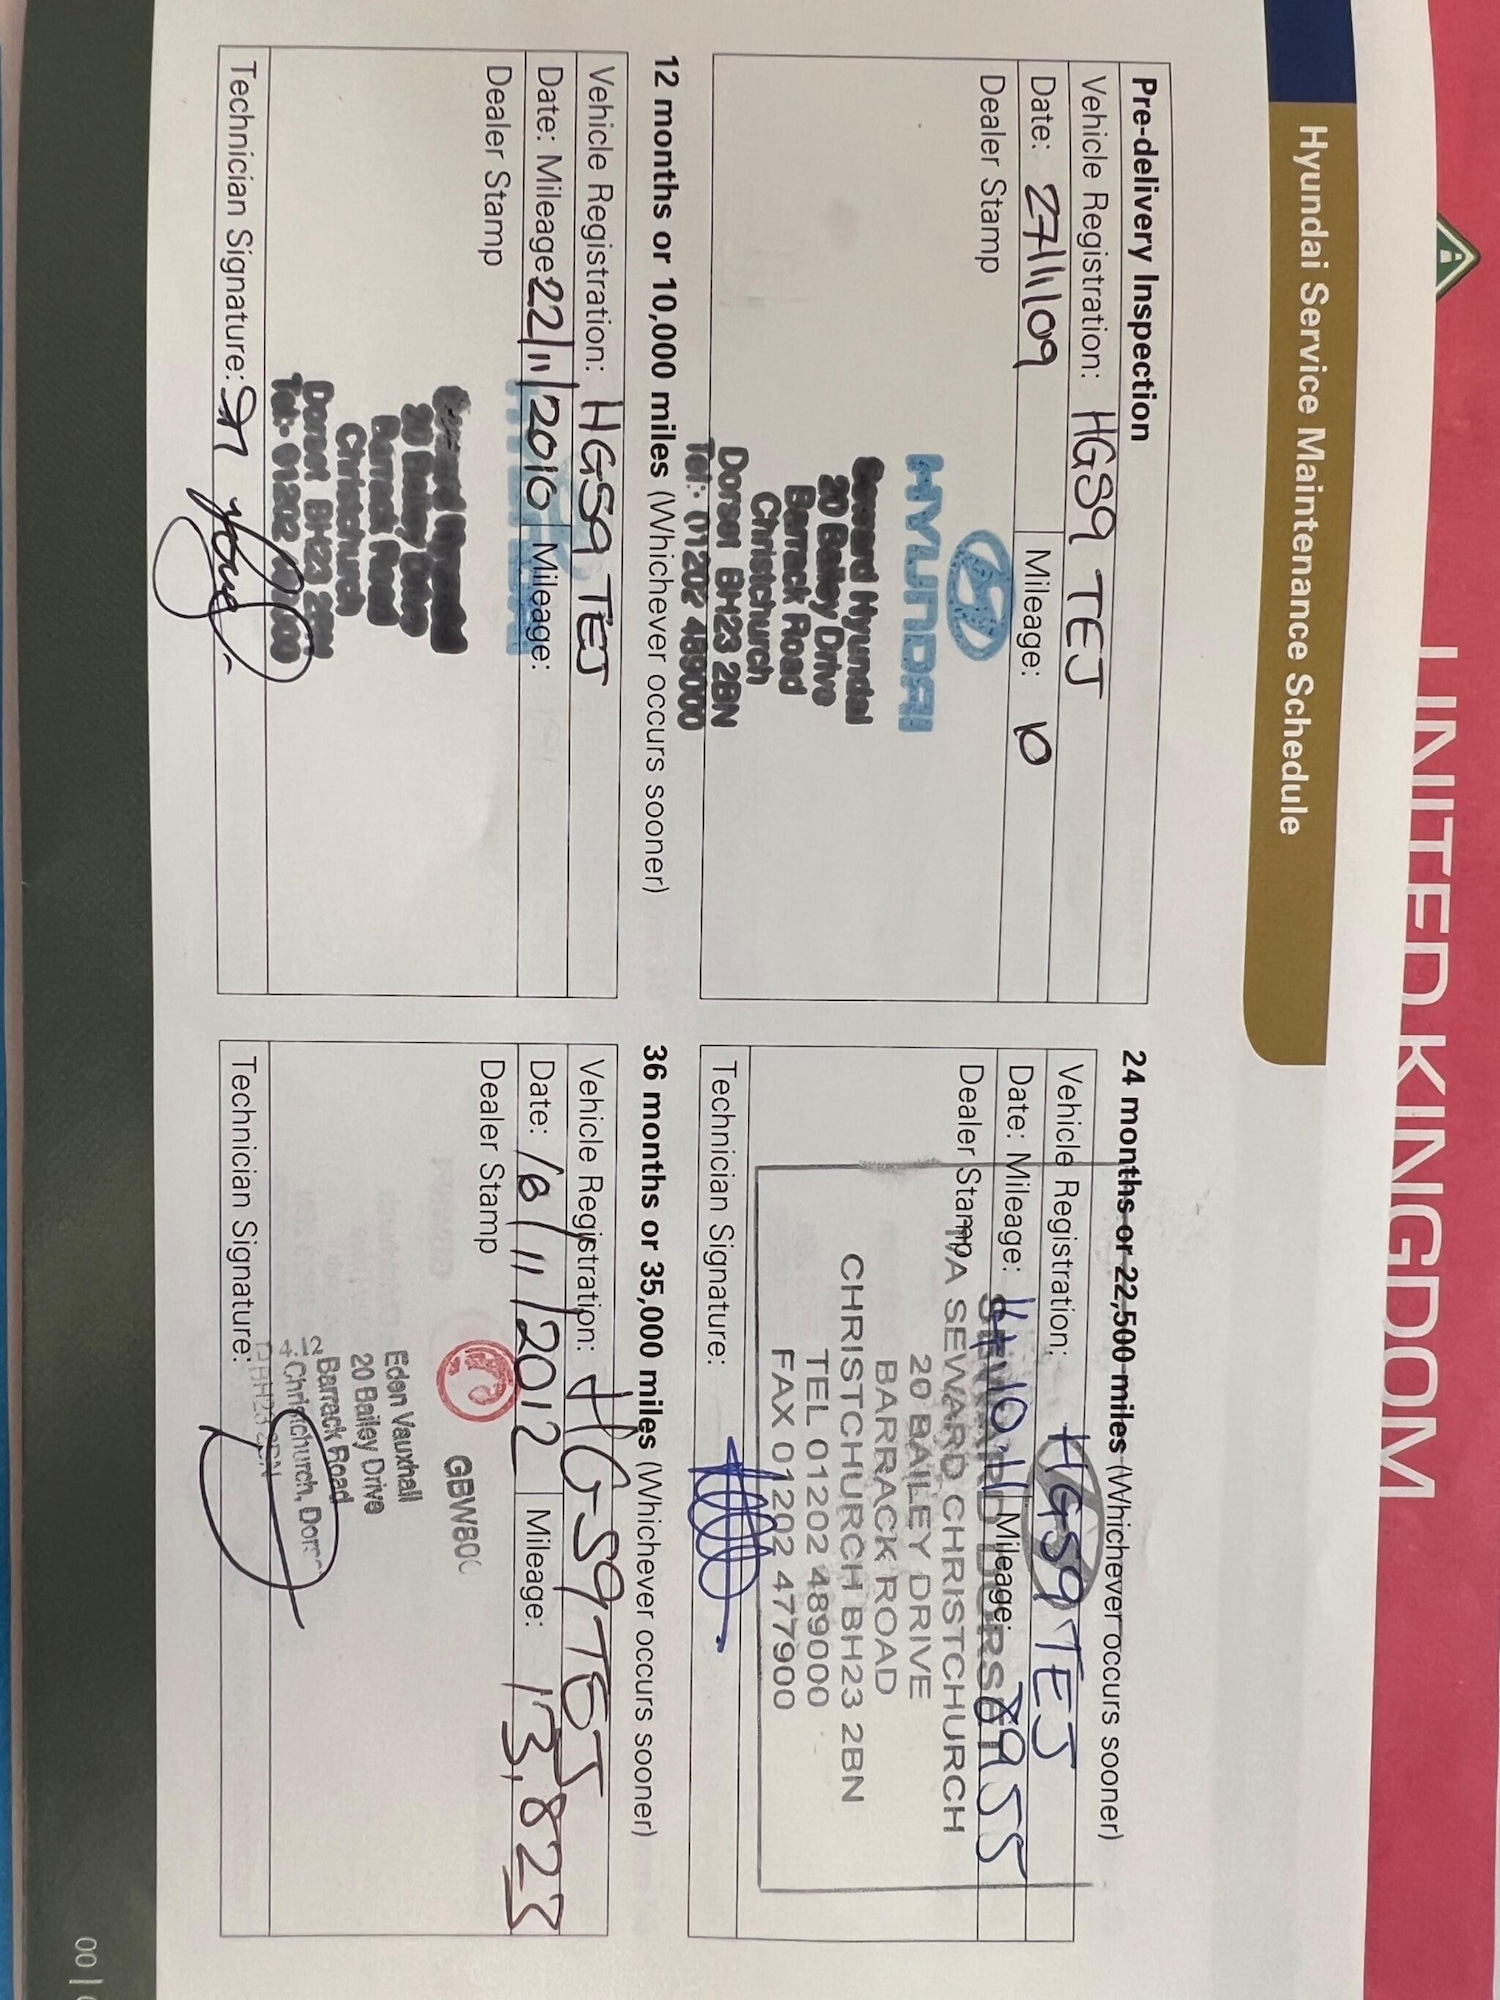 UNITED KINGDOM
Hyundai Service Maintenance Schedule
Pre-delivery Inspection
Vehicle Registration: HG59 TEJ
Date: 27/11/09 Mileage: 10
Dealer Stamp
HYUNDAI
Seward Hyundai
20 Bailey Drive
Barrack Road
Christchurch
Dorset BH23 2BN
Tel:- 01202 489000
12 months or 10,000 miles (Whichever occurs sooner)
Vehicle Registration: HG59 TEJ
Date: Mileage: 22/11/2010 Mileage:
Dealer Stamp
Hyundai
20 Bailey Drive
Barrack Road
Christchurch
Dorset BH23 2BN
Tel:- 01202
Technician Signature:
24 months or 22,500 miles (Whichever occurs sooner)
Vehicle Registration: HG59 TEJ
Date: Mileage: 10.11 Mileage: 8955
Dealer Stamp
T/A SEWARD CHRISTCHURCH
20 BAILEY DRIVE
BARRACK ROAD
CHRISTCHURCH BH23 2BN
TEL 01202 489000
FAX 01202 477900
Technician Signature:
36 months or 35,000 miles (Whichever occurs sooner)
Vehicle Registration: HG59TEJ
Date: 16/11/2012 Mileage: 13,823
Dealer Stamp
GBW80
Eden Vauxhall
20 Bailey Drive
Barrack Road
Christchurch, Dorse
BH23 2BN
Technician Signature:
00 |